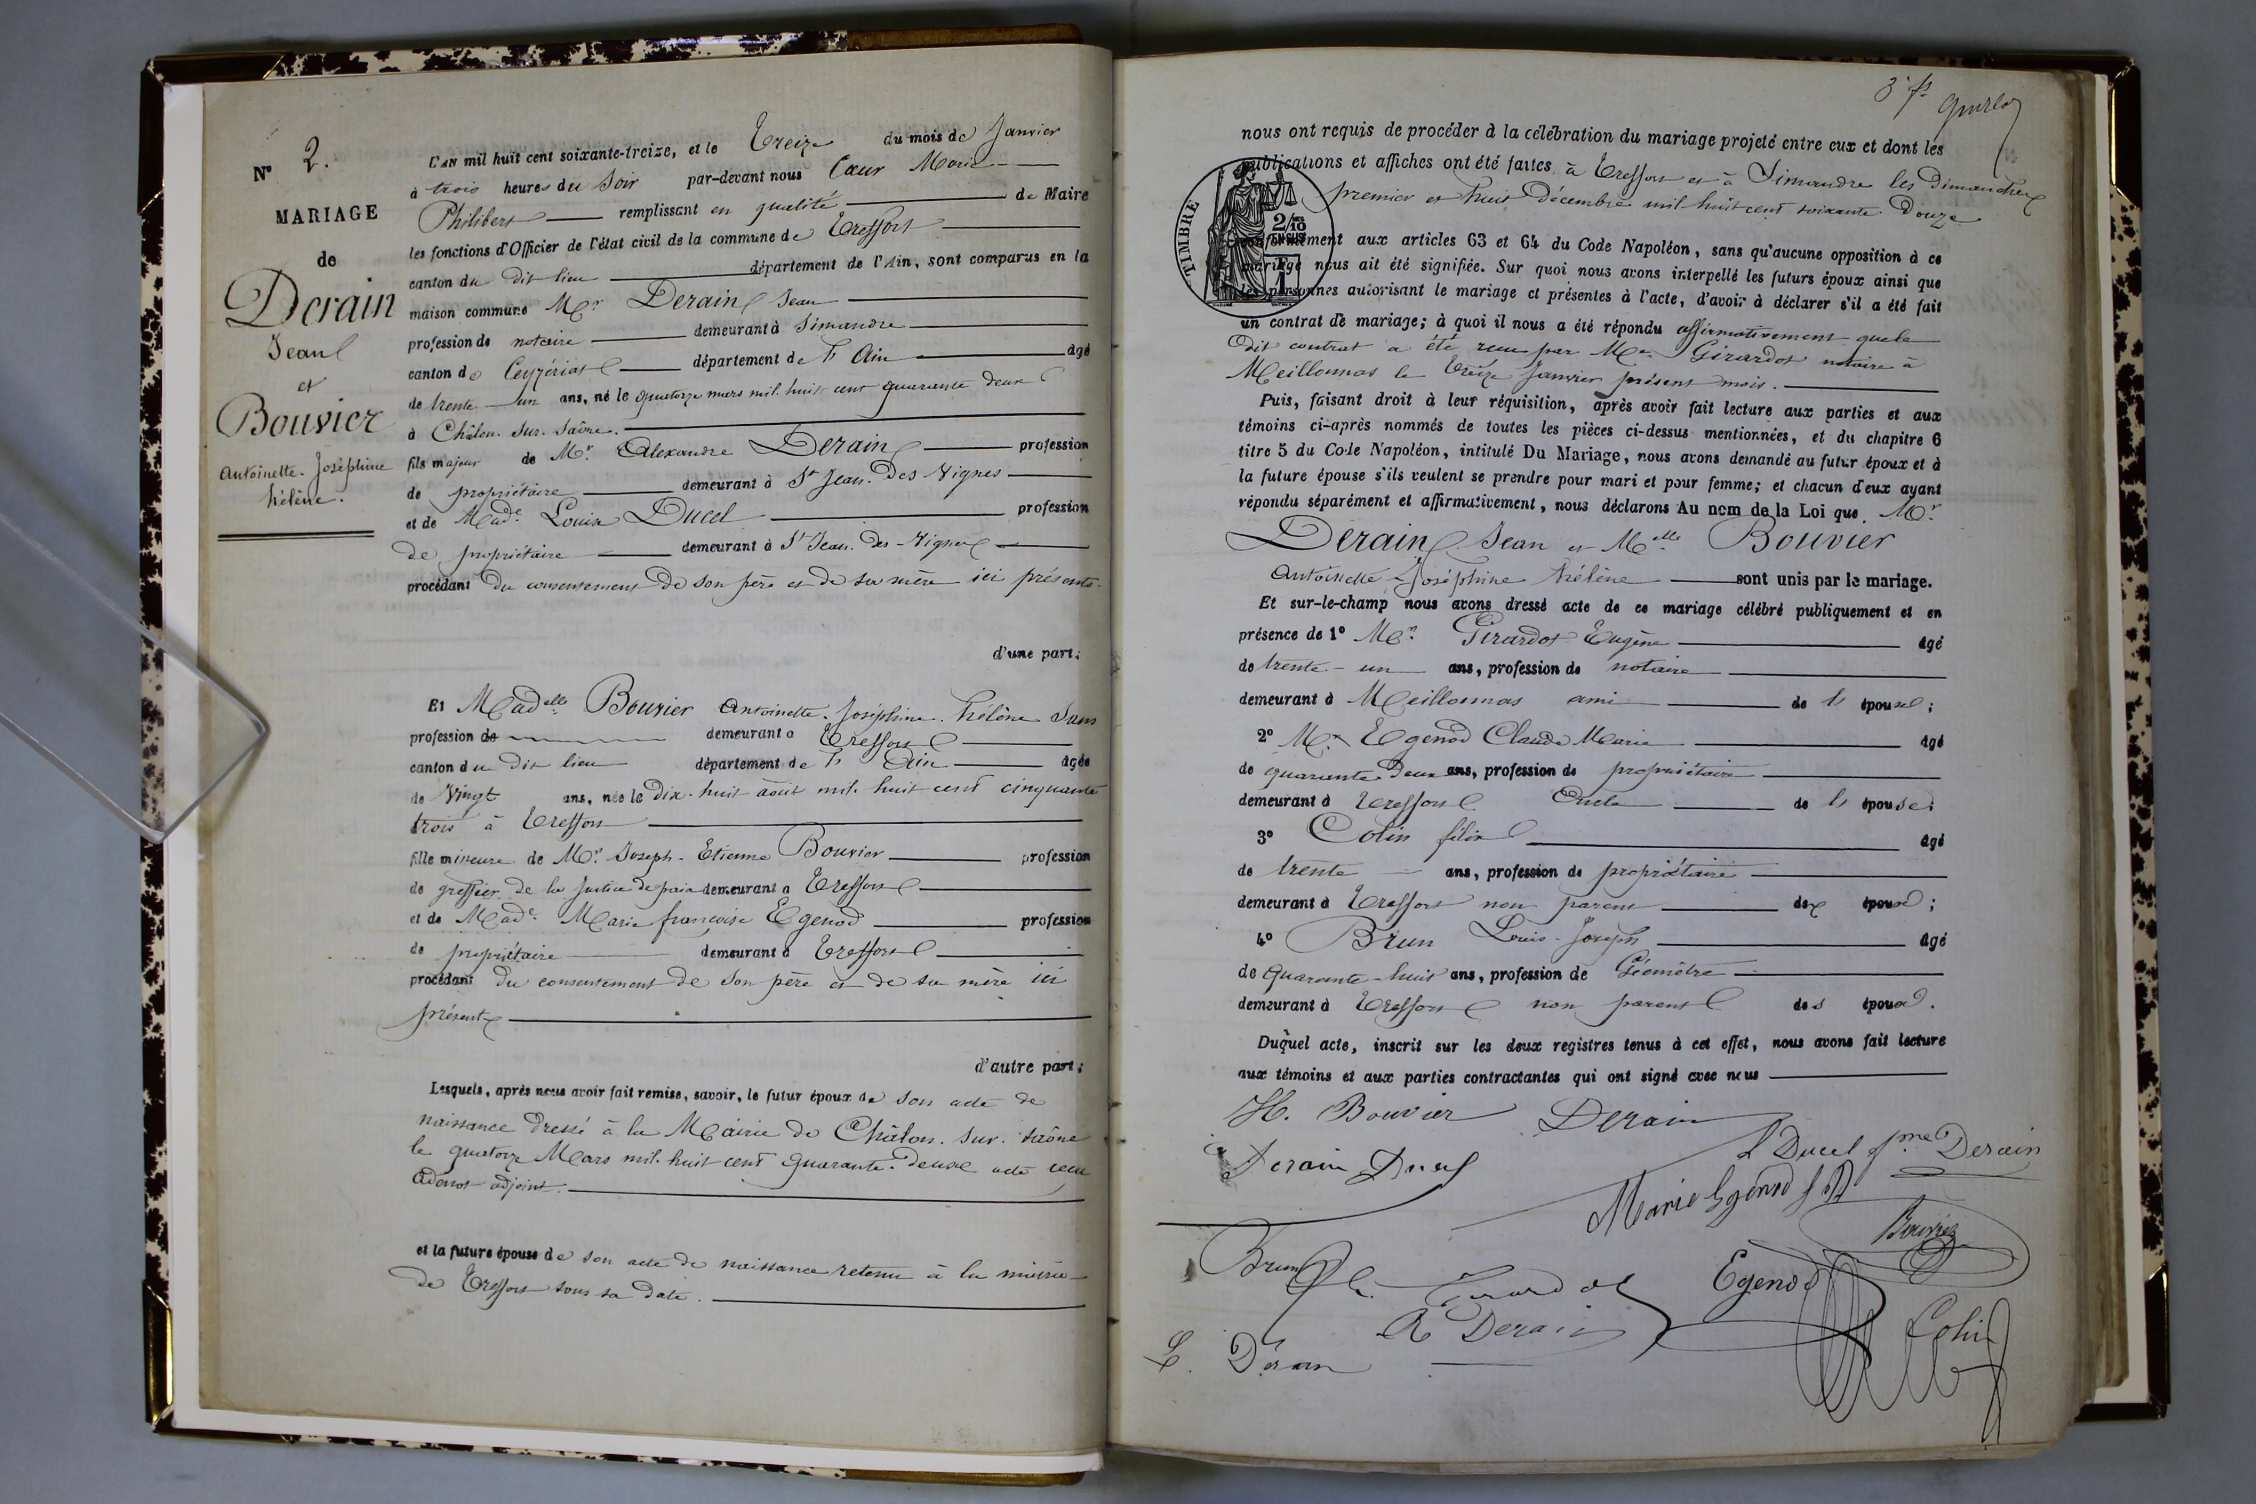 N° 2.
MARIAGE
de
Derain
Jean
et
Bouvier
Antoinette-Joséphine
hélène.
L'AN mil huit cent soixante-treize, et le Treize du mois de Janvier
à trois heures du Soir par-devant nous Cœur Marie
Philibert remplissant en qualité de Maire
les fonctions d'Officier de l'état civil de la commune de Treffort
canton du dit lieu département de l'Ain, sont comparus en la
maison commune Mr. Derain Jean
profession de notaire demeurant à Simandre
canton de Ceyzériat département de l'Ain âgé
de trente-un ans, né le quatorze mars mil-huit cent quarante deux
à Châlon-sur-Saône.
fils majeur de Mr. Alexandre Derain profession
de propriétaire demeurant à St Jean-Des Vignes
et de Made. Louise Ducel profession
de propriétaire demeurant à St Jean-des-Vignes
procédant du consentement de son père et de sa mère ici présents.
d'une part;
Et Madelle Bouvier Antoinette-Joséphine-hélène Sans
profession de demeurant à Treffort
canton du dit lieu département de l'Ain âgée
de Vingt ans, née le dix-huit août mil-huit cent cinquante
trois à Treffort
fille mineure de Mr. Joseph-Etienne Bouvier profession
de greffier de la justice de paix demeurant à Treffort
et de Made. Marie françoise Egenod profession
de propriétaire demeurant à Treffort
procédant du consentement de son père et de sa mère ici
présents
d'autre part;
Lesquels, après nous avoir fait remise, savoir, le futur époux de son acte de
naissance dressé à la Mairie de Châlon-sur-Saône
le quatorze Mars mil-huit cent quarante-deux acte reçu
adjoint.
et la future épouse de son acte de naissance retenu à la mairie
de Treffort sous sa date.
nous ont requis de procéder à la célébration du mariage projeté entre eux et dont les
publications et affiches ont été faites à Treffort et à Simandre les Dimanches
premier et huit Décembre mil huit cent soixante Douze
TIMBRE 2/10 EN SUS 1
conformément aux articles 63 et 64 du Code Napoléon, sans qu'aucune opposition à ce
mariage nous ait été signifiée. Sur quoi nous avons interpellé les futurs époux ainsi que
les personnes autorisant le mariage et présentes à l'acte, d'avoir à déclarer s'il a été fait
un contrat de mariage; à quoi il nous a été répondu affirmativement que le
dit contrat a été reçu par Me. Girardot notaire à
Meillonnas le treize Janvier présent mois.
Puis, faisant droit à leur réquisition, après avoir fait lecture aux parties et aux
témoins ci-après nommés de toutes les pièces ci-dessus mentionnées, et du chapitre 6
titre 5 du Code Napoléon, intitulé Du Mariage, nous avons demandé au futur époux et à
la future épouse s'ils veulent se prendre pour mari et pour femme; et chacun d'eux ayant
répondu séparément et affirmativement, nous déclarons Au nom de la Loi que. Mr.
Derain Jean et Melle Bouvier
Antoinette-Joséphine hélène sont unis par le mariage.
Et sur-le-champ nous avons dressé acte de ce mariage célébré publiquement et en
présence de 1° Mr. Girardot Eugène âgé
de trente-un ans, profession de notaire
demeurant à Meillonnas ami de l'époux;
2° Mr. Egenod Claude Marie âgé
de quarante deux ans, profession de propriétaire
demeurant à Treffort Oncle de l'épouse;
3° Colin félix âgé
de trente ans, profession de propriétaire
demeurant à Treffort non parent des époux;
4° Brun Louis-Joseph âgé
de quarante-huit ans, profession de Géomètre
demeurant à Treffort non parent des époux.
Duquel acte, inscrit sur les deux registres tenus à cet effet, nous avons fait lecture
aux témoins et aux parties contractantes qui ont signé avec nous
H. Bouvier Derain
Derain Ducel L Ducel fme Derain
Marie Egenod
Bouvier
Brun Girardot Egenod
A Derain Colin
L. Derain